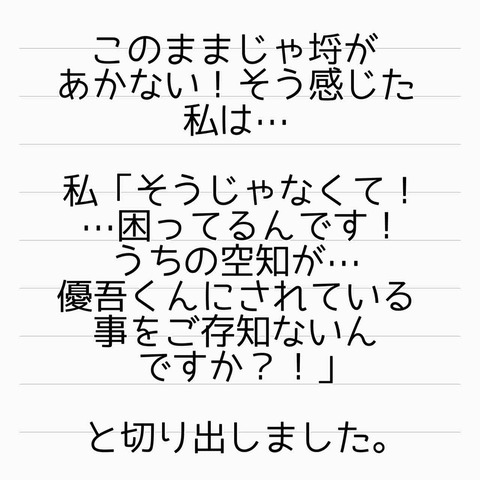 このままじゃ埒が
あかない！そう感じた
私は…
私「そうじゃなくて！
…困ってるんです！
うちの空知が…
優吾くんにされている
事をご存知ないん
ですか？！」
と切り出しました。